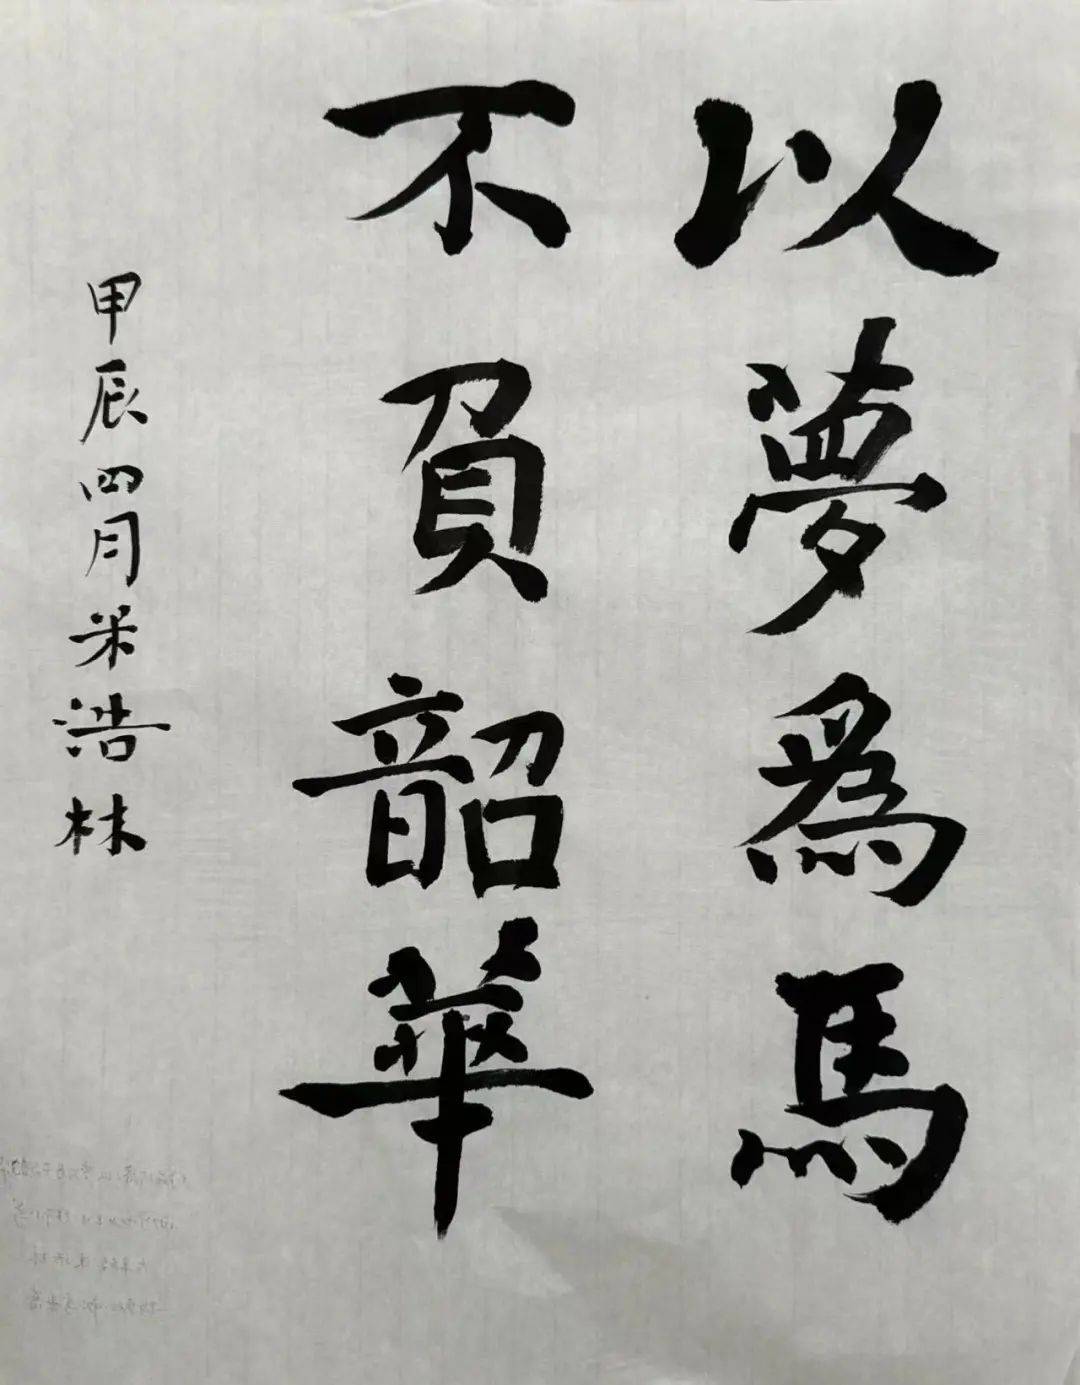 以夢為馬
不負韶華
甲辰四月米浩林